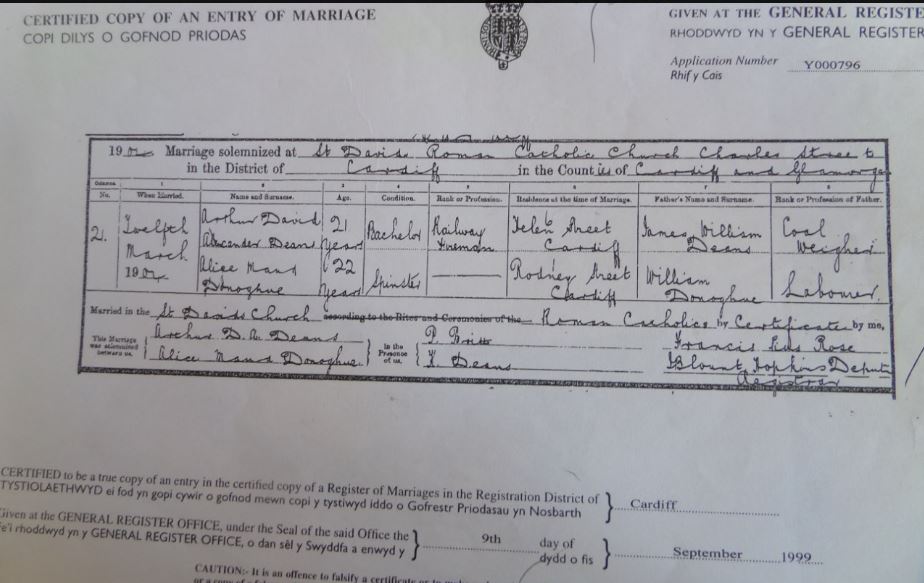 CERTIFIED COPY OF AN ENTRY OF MARRIAGE
COPI DILYS O GOFNOD PRIODAS
GIVEN AT THE GENERAL REGISTE
RHODDWYD YN Y GENERAL REGISTER
Application Number Y000796
Rhif y Cais
19 Marriage solemnized at St Davids Roman Catholic Church Charles Street
in the District of Cardiff in the Counties of Cardiff and Glamorga
Columns 1 2 3 4 5 6 7 8
No. When Married. Name and Surname. Age. Condition. Rank or Profession. Residence at the time of Marriage. Father's Name and Surname. Rank or Profession of Father.
21 Twelfth March 19 Arthur David Alexander Deans 21 years Bachelor Railway Fireman Helen Street Cardiff James William Deans Coal Weigher
Alice Maud Donoghue 22 years Spinster Rodney Street Cardiff William Donoghue Labourer
Married in the St Davids Church according to the Rites and Ceremonies of the Roman Catholics by Certificate by me,
This Marriage was solemnized between us, Arthur D. A. Deans In the Presence of us,
Alice Maud Donoghue Deans
Francis Rose
Blount Hopkins Deput
Registrar
CERTIFIED to be a true copy of an entry in the certified copy of a Register of Marriages in the Registration District of
TYSTIOLAETHWYD ei fod yn gopi cywir o gofnod mewn copi y tystiwyd iddo o Gofrestr Priodasau yn Nosbarth
Cardiff
Given at the GENERAL REGISTER OFFICE, under the Seal of the said Office the
e'i rhoddwyd yn y GENERAL REGISTER OFFICE, o dan sêl y Swyddfa a enwyd y
9th day of
dydd o fis
September 1999
CAUTION:- It is an offence to falsify a certificate